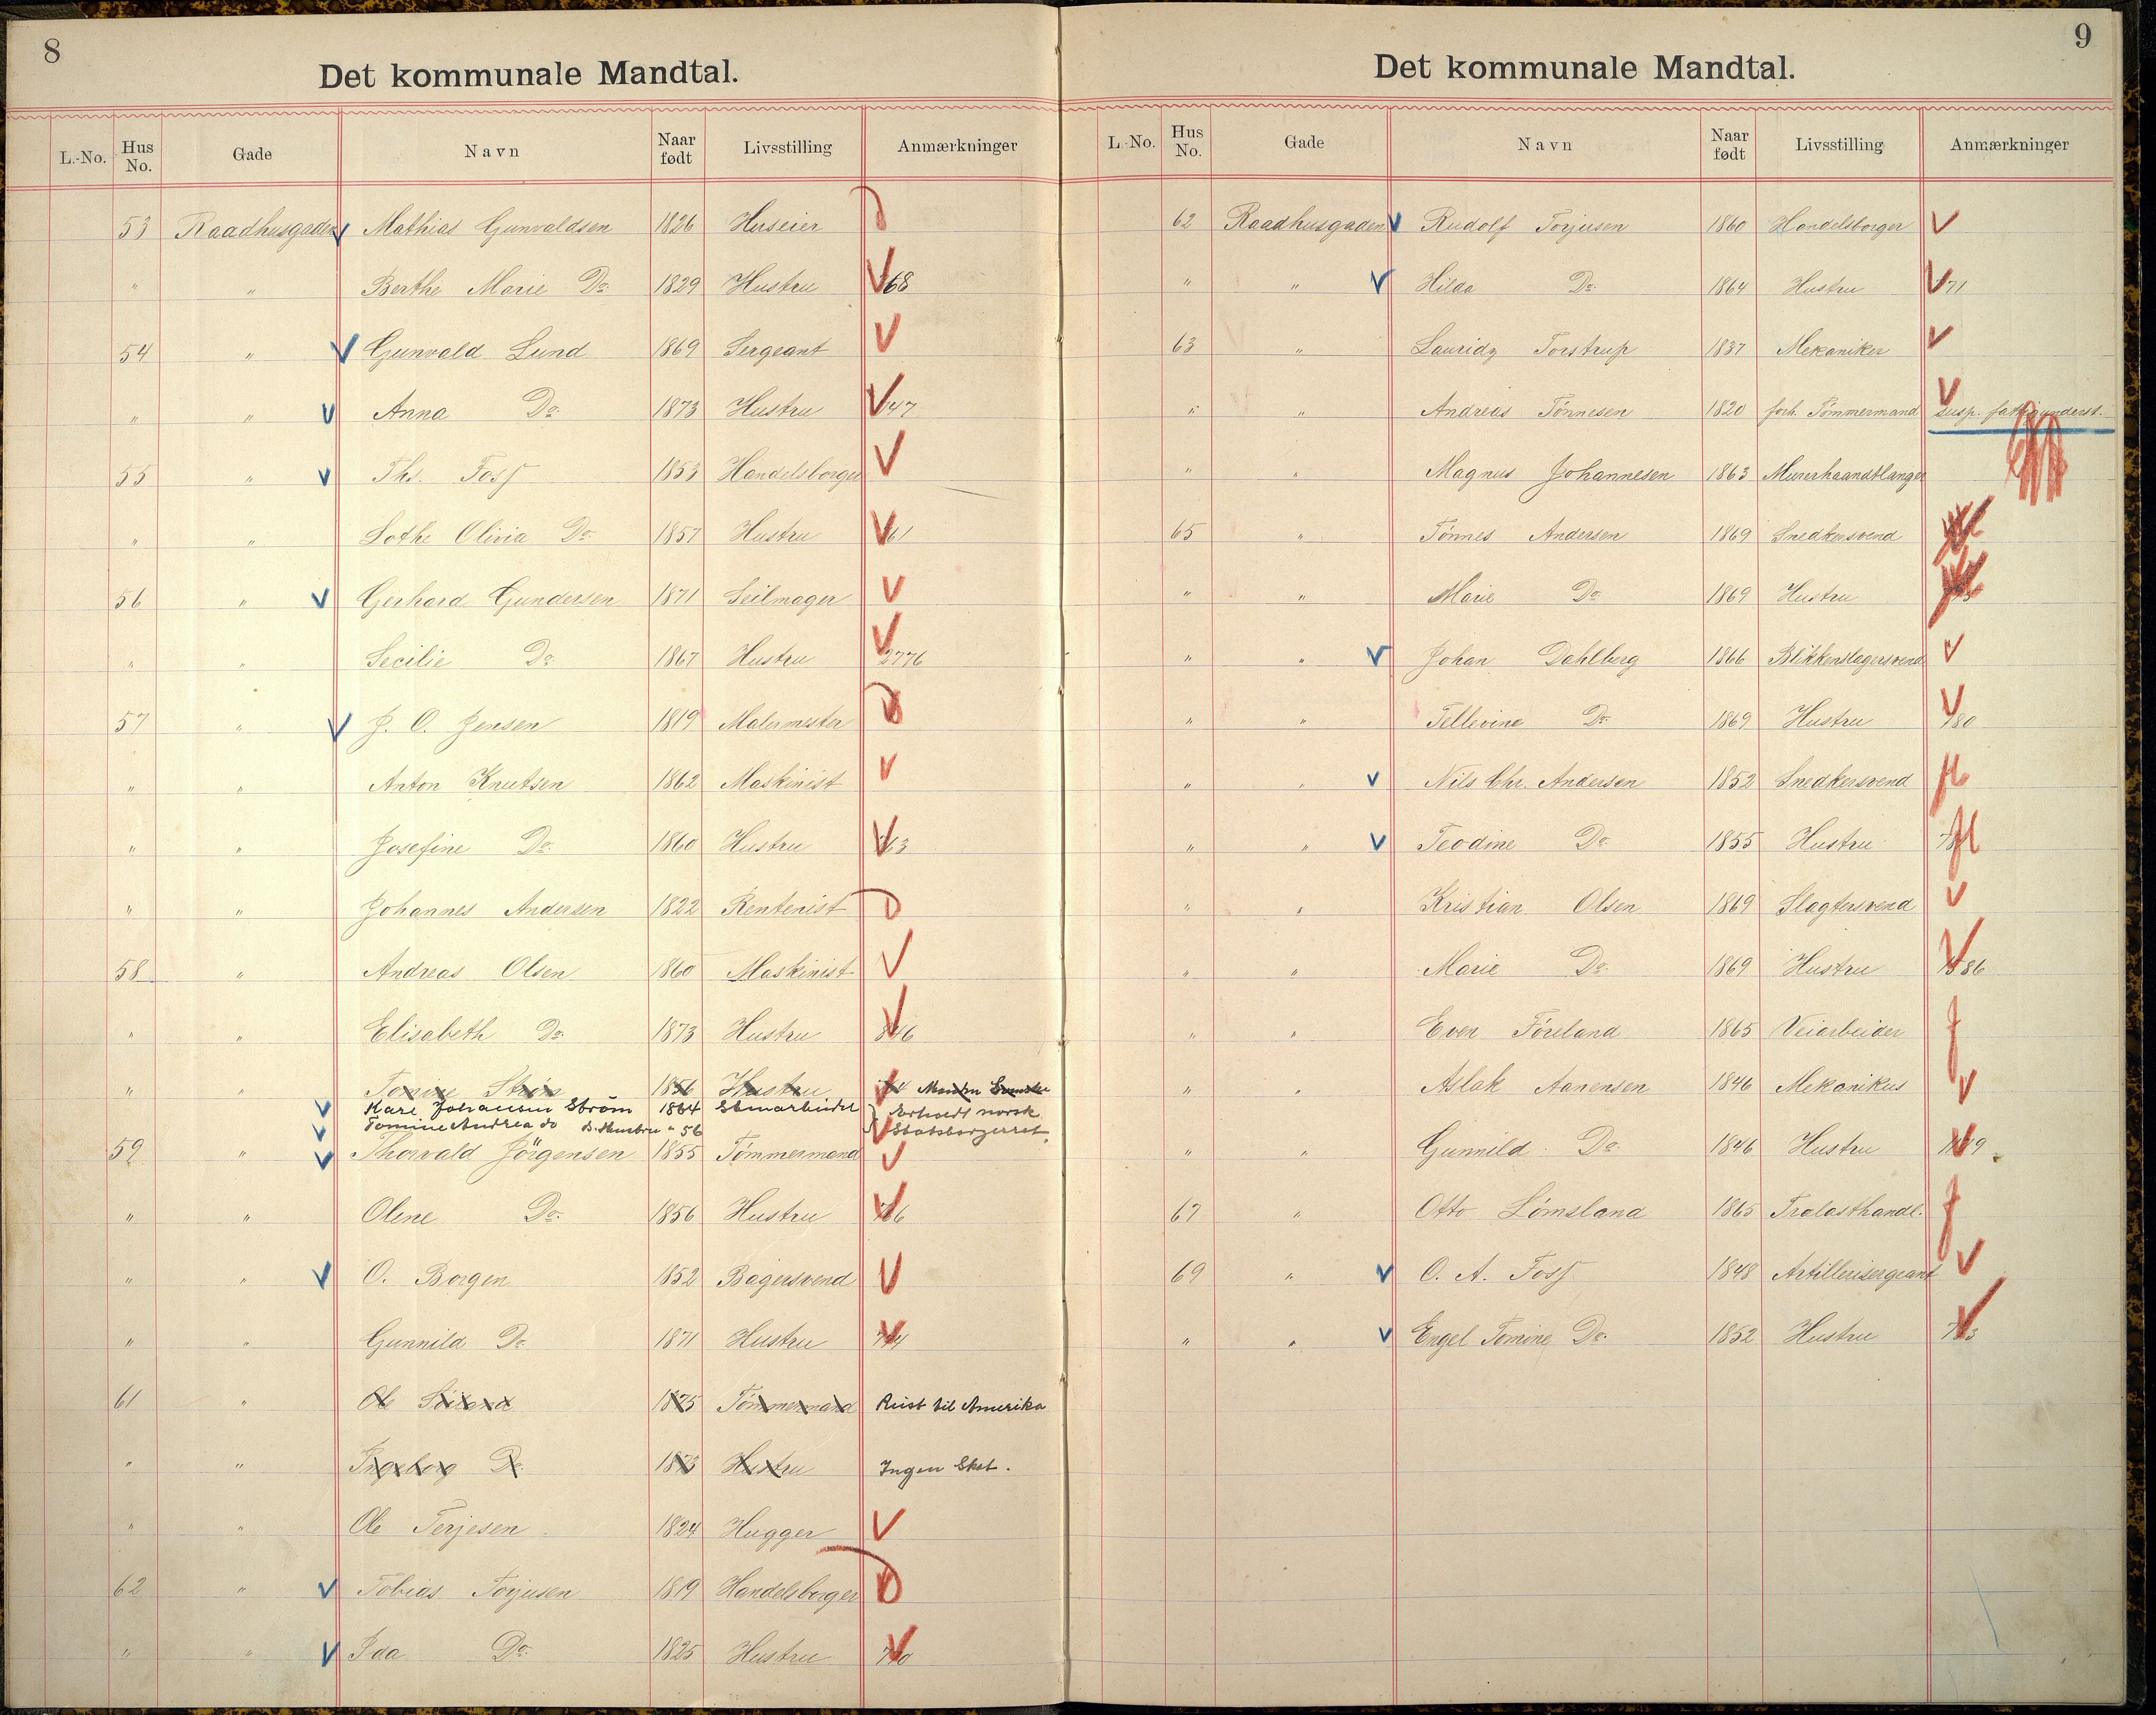 8
Det kommunale Mandtal.
L.-No. Hus No. Gade Navn Naar født Livsstilling Anmærkninger
53 Raadhusgaden Mathias Gunvaldsen 1826 Huseier
" " Berthe Marie Do 1829 Hustru 68
54 " Gunvald Lund 1869 Sergeant
" " Anna Do 1873 Hustru 47
55 " Ths. Foss 1853 Handelsborger
" " Lothe Olivia Do 1857 Hustru 61
56 " Gerhard Gundersen 1871 Seilmager
" " Secilie Do 1867 Hustru 2776
57 " J. O. Jensen 1819 Malermester
" " Anton Knutsen 1862 Maskinist
" " Josefine Do 1860 Hustru
" " Johannes Andersen 1822 Rentenist
58 " Andreas Olsen 1860 Maskinist
" " Elisabeth Do 1873 Hustru
" " Tomine Strøm 1856 Hustru
Karl Johansen Strøm 1864
Tomine Andrea do D. Hustru " 56 Erholdt norsk Statsborgerret.
59 " Thorvald Jörgensen 1855 Tømmermand
" " Olene Do 1856 Hustru
" " O. Borgen 1852 Bagersvend
" " Gunnild Do 1871 Hustru
61 " Ole 1875 Tømmermand Reist til Amerika
" " Ingeborg Do 1873 Hustru Ingen Skat.
" " Ole Terjesen 1824 Hugger
62 " Tobias Torjusen 1819 Handelsborger
" " Ida Do 1825 Hustru 770
9
Det kommunale Mandtal.
L.-No. Hus No. Gade Navn Naar født Livsstilling Anmærkninger
62 Raadhusgaden Rudolf Torjusen 1860 Handelsborger
" " Hilda Do 1864 Hustru 71
63 " Lauridz Torstrup 1837 Mekaniker
" " Andreas Tønnesen 1820 forh. Tømmermand susp. fattigunderst.
" " Magnus Johannesen 1863 Murerhaandtlanger
65 " Tønnes Andersen 1869 Snedkersvend
" " Marie Do 1869 Hustru
" " Johan Dahlberg 1866 Blikkenslagersvend
" " Tellevine Do 1869 Hustru 780
" " Nils Chr. Andersen 1852 Snedkersvend
" " Teodine Do 1855 Hustru
" " Kristian Olsen 1869 Slagtersvend
" " Marie Do 1869 Hustru 86
" " Even Føreland 1865 Veiarbeider
" " Aslak Aanensen 1846 Mekanikus
" " Gunnild Do 1846 Hustru
67 " Otto Lømsland 1865 Trælasthandl.
69 " O. A. Foss 1848 Artillerisergeant
" " Engel Tomine Do 1852 Hustru